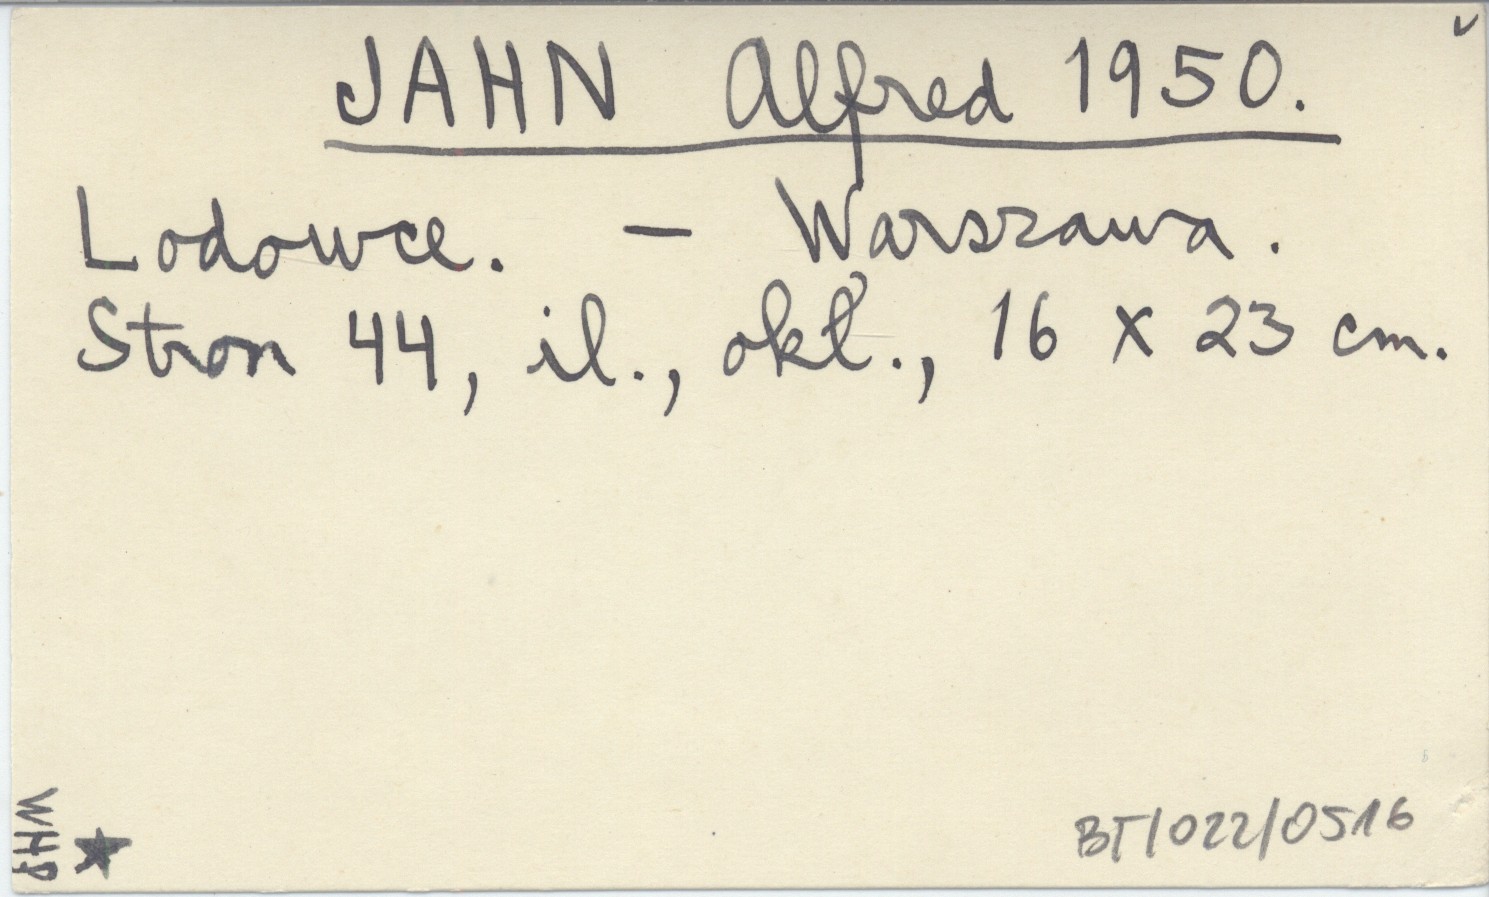 JAHN Alfred 1950.
Lodowce. – Warszawa.
Stron 44, il., okł., 16 x 23 cm.
BT/022/0516